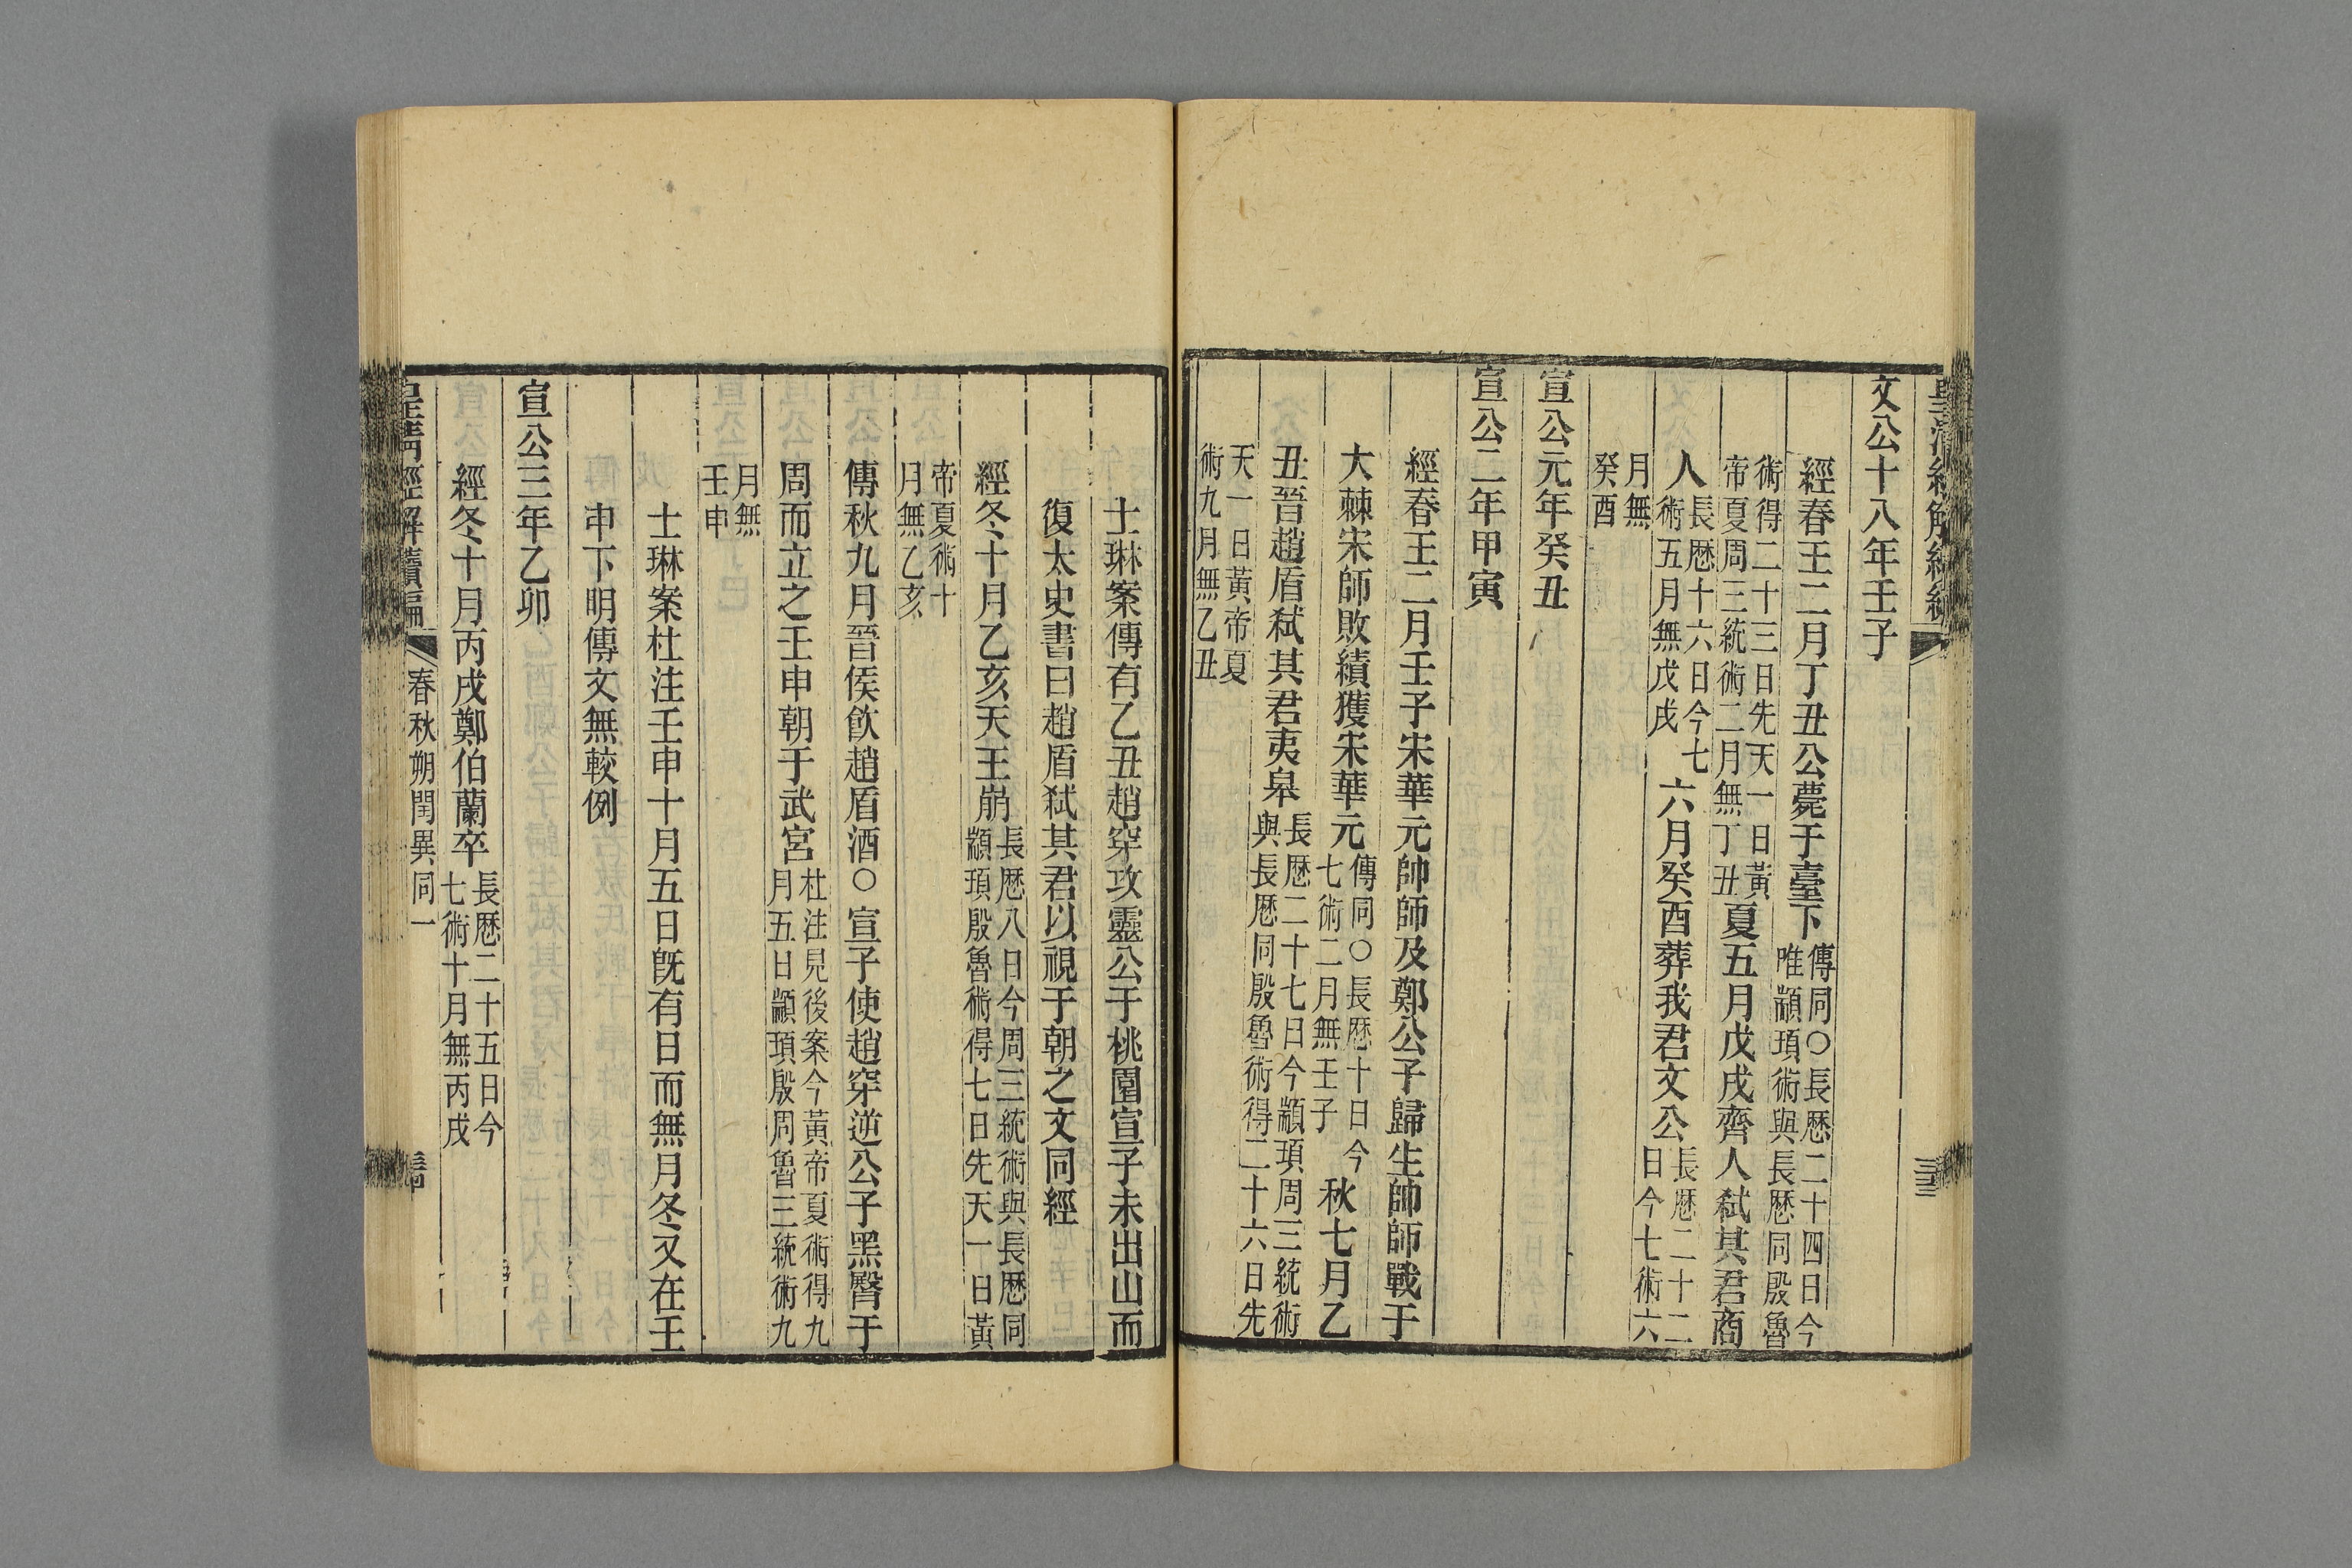 皇清經解續編
文公十八年壬子
經春王二月丁丑公薨于臺下傳同○長厯二十四日今
唯顓頊術與長厯同殷魯
術得二十三日先天一日黃
帝夏周三統術二月無丁丑夏五月戊戌齊人弒其君商
人長厯十六日今七
術五月無戊戌六月癸酉葬我君文公長厯二十二
日今七術六
月無
癸酉
宣公元年癸丑
宣公二年甲寅
經春王二月壬子宋華元帥師及鄭公子歸生帥師戰于
大棘宋師敗績獲宋華元傳同○長厯十日今
七術二月無壬子秋七月乙
丑晉趙盾弒其君夷皋長厯二十七日今顓頊周三統術
與長厯同殷魯術得二十六日先
天一日黃帝夏
術九月無乙丑
士琳案傳有乙丑趙穿攻靈公于桃園宣子未出山而
復太史書曰趙盾弒其君以視于朝之文同經
經冬十月乙亥天王崩長厯八日今周三統術與長厯同
顓頊殷魯術得七日先天一日黃
帝夏術十
月無乙亥
傳秋九月晉侯飲趙盾酒○宣子使趙穿逆公子黑臀于
周而立之壬申朝于武宮杜注見後案今黃帝夏術得九
月五日顓頊殷周魯三統術九
月無
壬申
士琳案杜注壬申十月五日旣有日而無月冬又在壬
申下明傳文無較例
宣公三年乙卯
經冬十月丙戌鄭伯蘭卒長厯二十五日今
七術十月無丙戌
皇清經解續編
春秋朔閏異同一